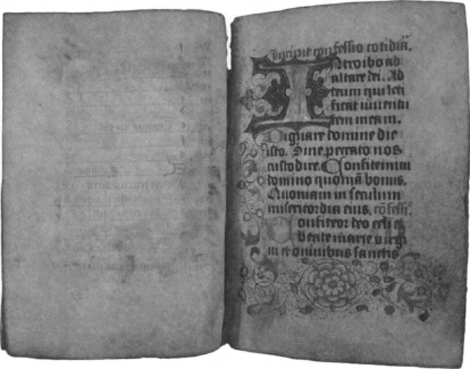 Incipit confessio cotidiā.
Introibo ad
altare dei. Ad
deum qui leti
ficat iuuentu
tem meam.
Dignare domine die
isto. Sine peccato nos
custodire. Confitemini
domino quoniā bonus.
Quoniam in seculum
misericordia eius. cōfessi.
Confiteor deo celi et
beate marie uirgi
ni et omnibus sanctis